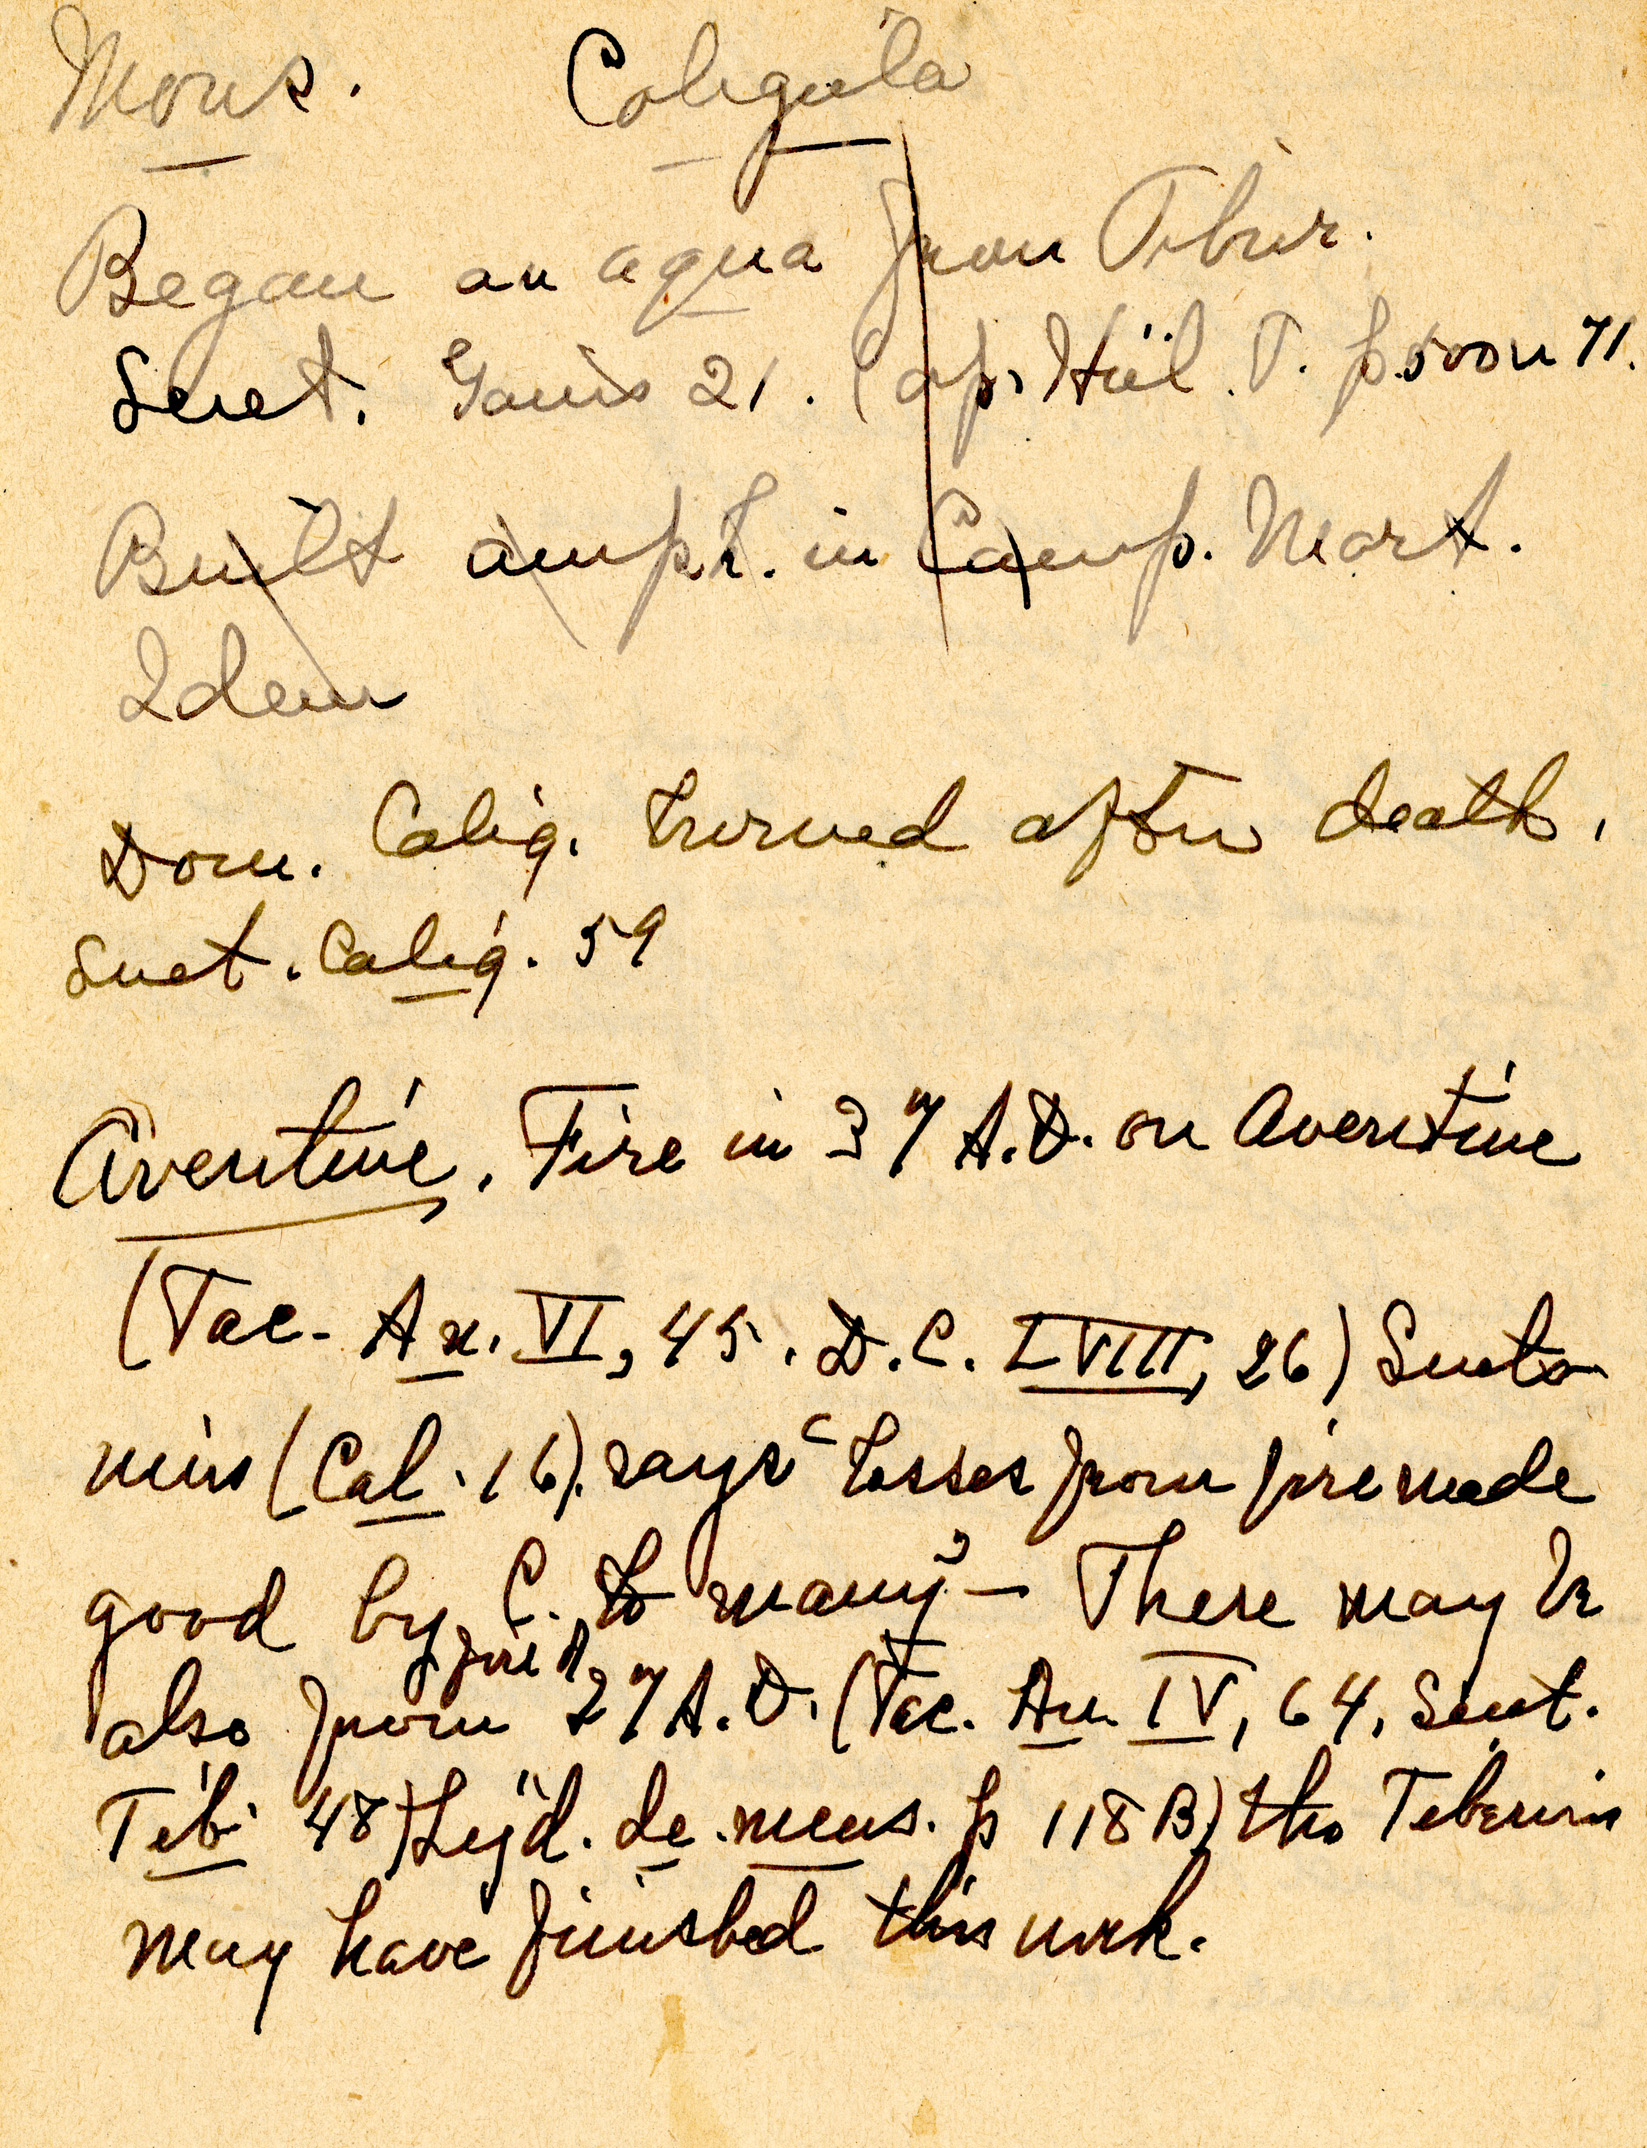 Mons. Caligula
Began an aqua from Tibur.
Suet. Gaius 21. (ap. Hül. T. p. 500 n 71.
Built ampt. in Camp. Mart.
Idem
Dom. Calig. burned after death.
Suet. Calig. 59
Aventine. Fire in 37 A.D. on Aventine
(Tac. An. VI, 45. D.C. LVIII, 26) Sueto
nius (Cal. 16). says "losses from fire made
good by C. to many" — There may be
also from fire 27 A.D. (Tac. An. IV, 64, Suet.
Tib. 48) Lyd. de mens. p 118 B) tho Tiberius
may have finished this work.